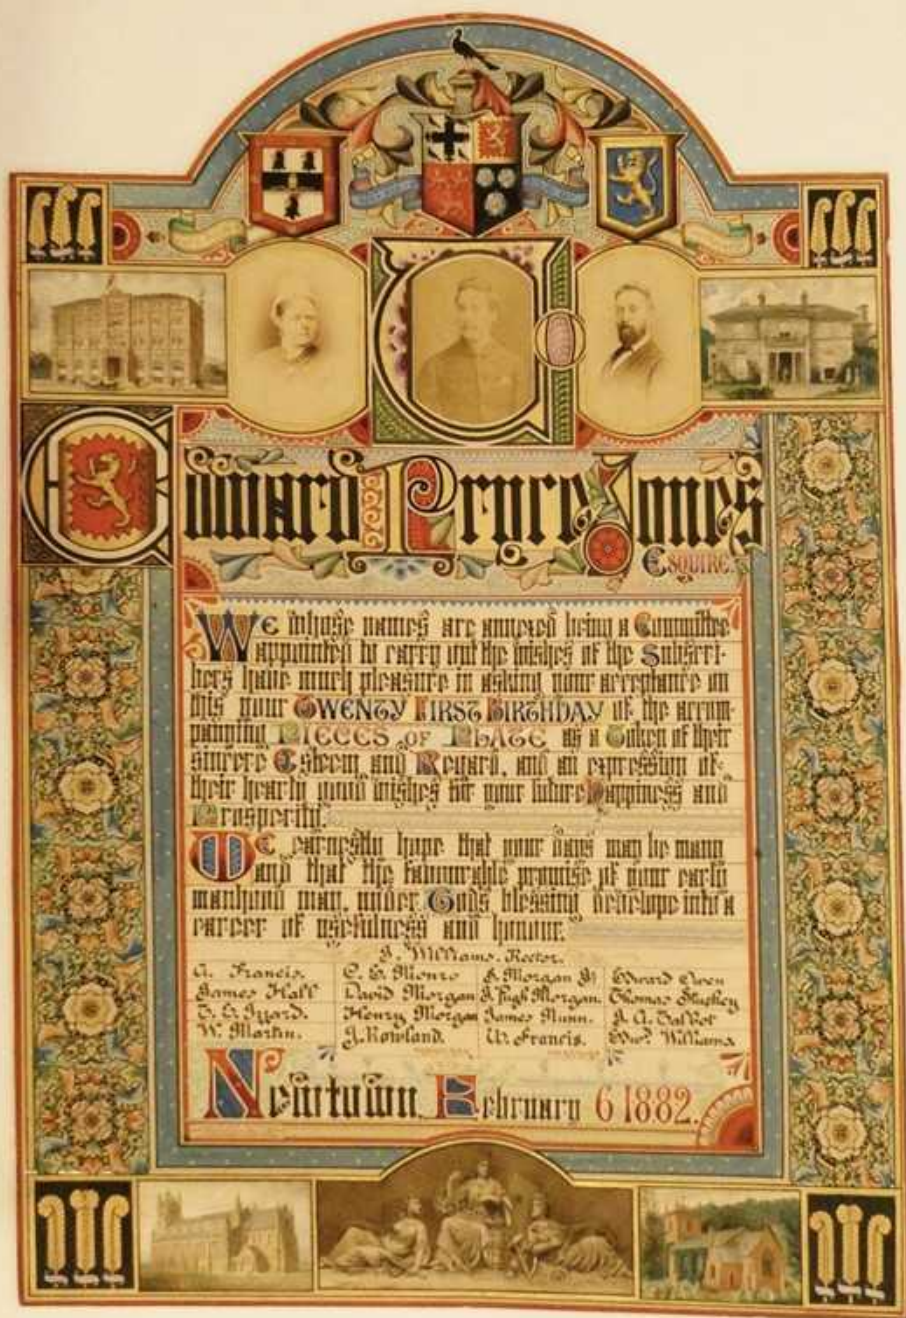 Edward Pryce Jones
ESQUIRE.
WE whose names are annexed being a Committee
appointed to carry out the wishes of the Subscri-
bers have much pleasure in asking your acceptance on
this your TWENTY FIRST BIRTHDAY of the accom-
panying PIECES OF PLATE as a Token of their
sincere Esteem and Regard, and an expression of
their hearty good wishes for your future Happiness and
Prosperity.
We earnestly hope that your days may be many
and that the favourable promise of your early
manhood may, under Gods blessing develope into a
career of usefulness and honour.
J. Williams. Rector.
A. Francis. C. E. Monro J. Morgan Jr Edward Owen
James Hall David Morgan J. Pugh Morgan. Thomas
Izzard. Henry Morgan James Nunn. J. A. Talbot
W. Martin. J. Rowland. W. Francis. Edwd. Williams
Newtown, February 6 1882.